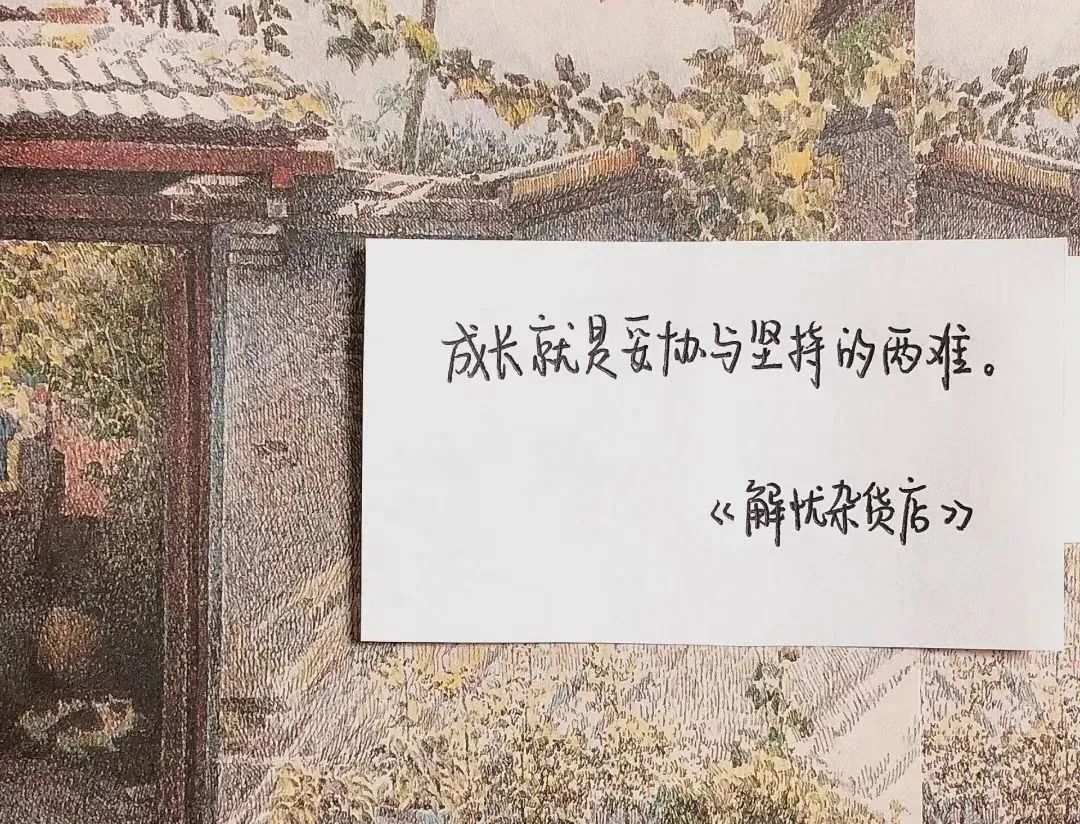 成长就是妥协与坚持的两难。
《解忧杂货店》